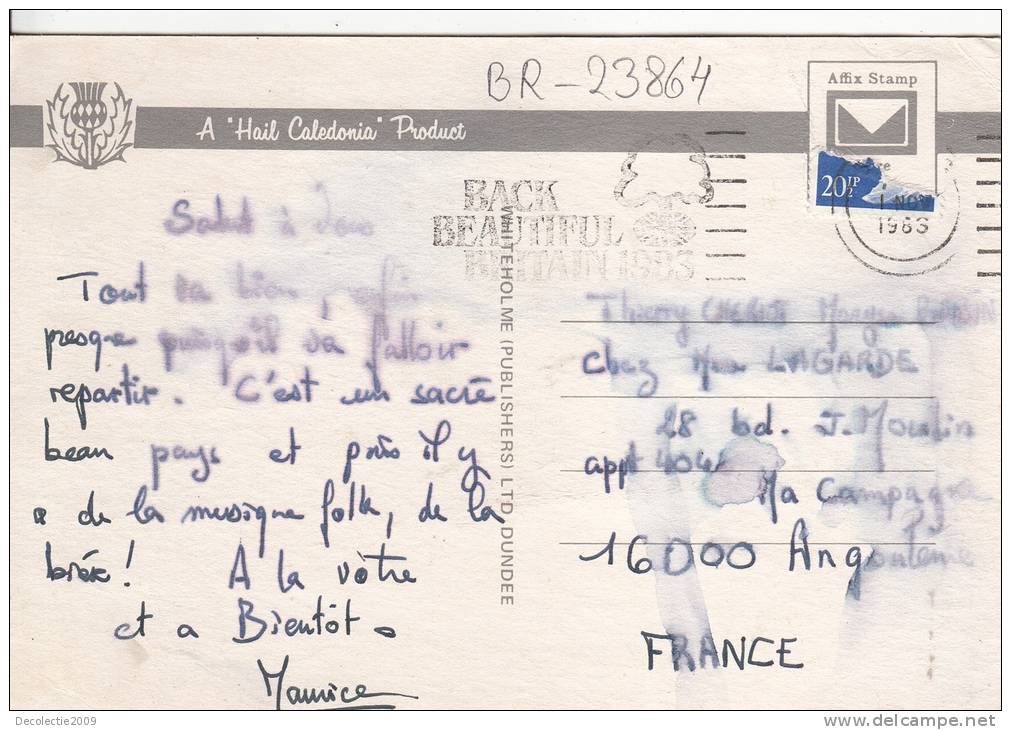 BR-23864
Affix Stamp
A "Hail Caledonia" Product
20½P
1 NOV
1983
BACK
BEAUTIFUL
BRITAIN 1983
WHITEHOLME (PUBLISHERS) LTD. DUNDEE
Salut à vous
Tout va bien, enfin
presque puisqu'il va falloir
repartir. C'est un sacré
beau pays et puis il y
a de la musique folk, de la
bière! A la vôtre
et a Bientôt.
Maurice
Thierry
chez Mme LAGARDE
28 bd. J. Moulin
appt 404 Ma Campagne
16000 Angoulême
FRANCE
Decolectie2009
www.delcampe.net